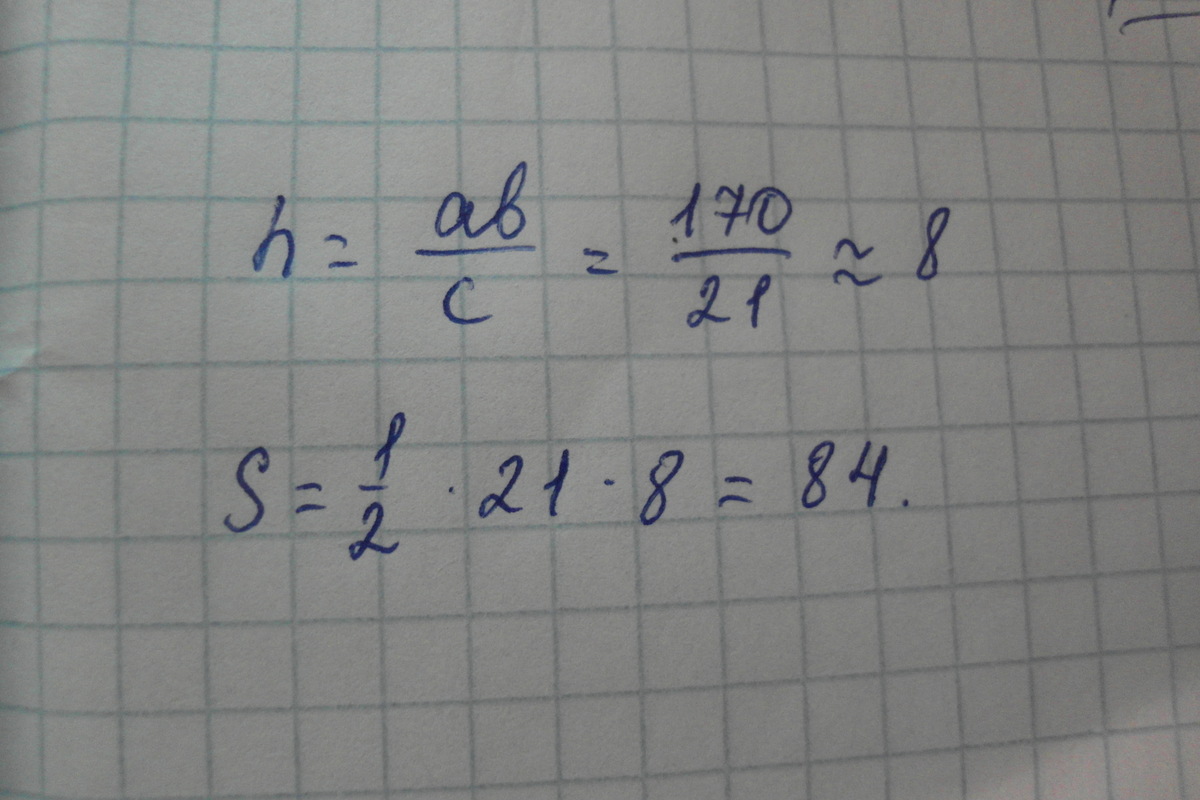 h = ab/c = 170/21 ≈ 8
S = 1/2 · 21 · 8 = 84.